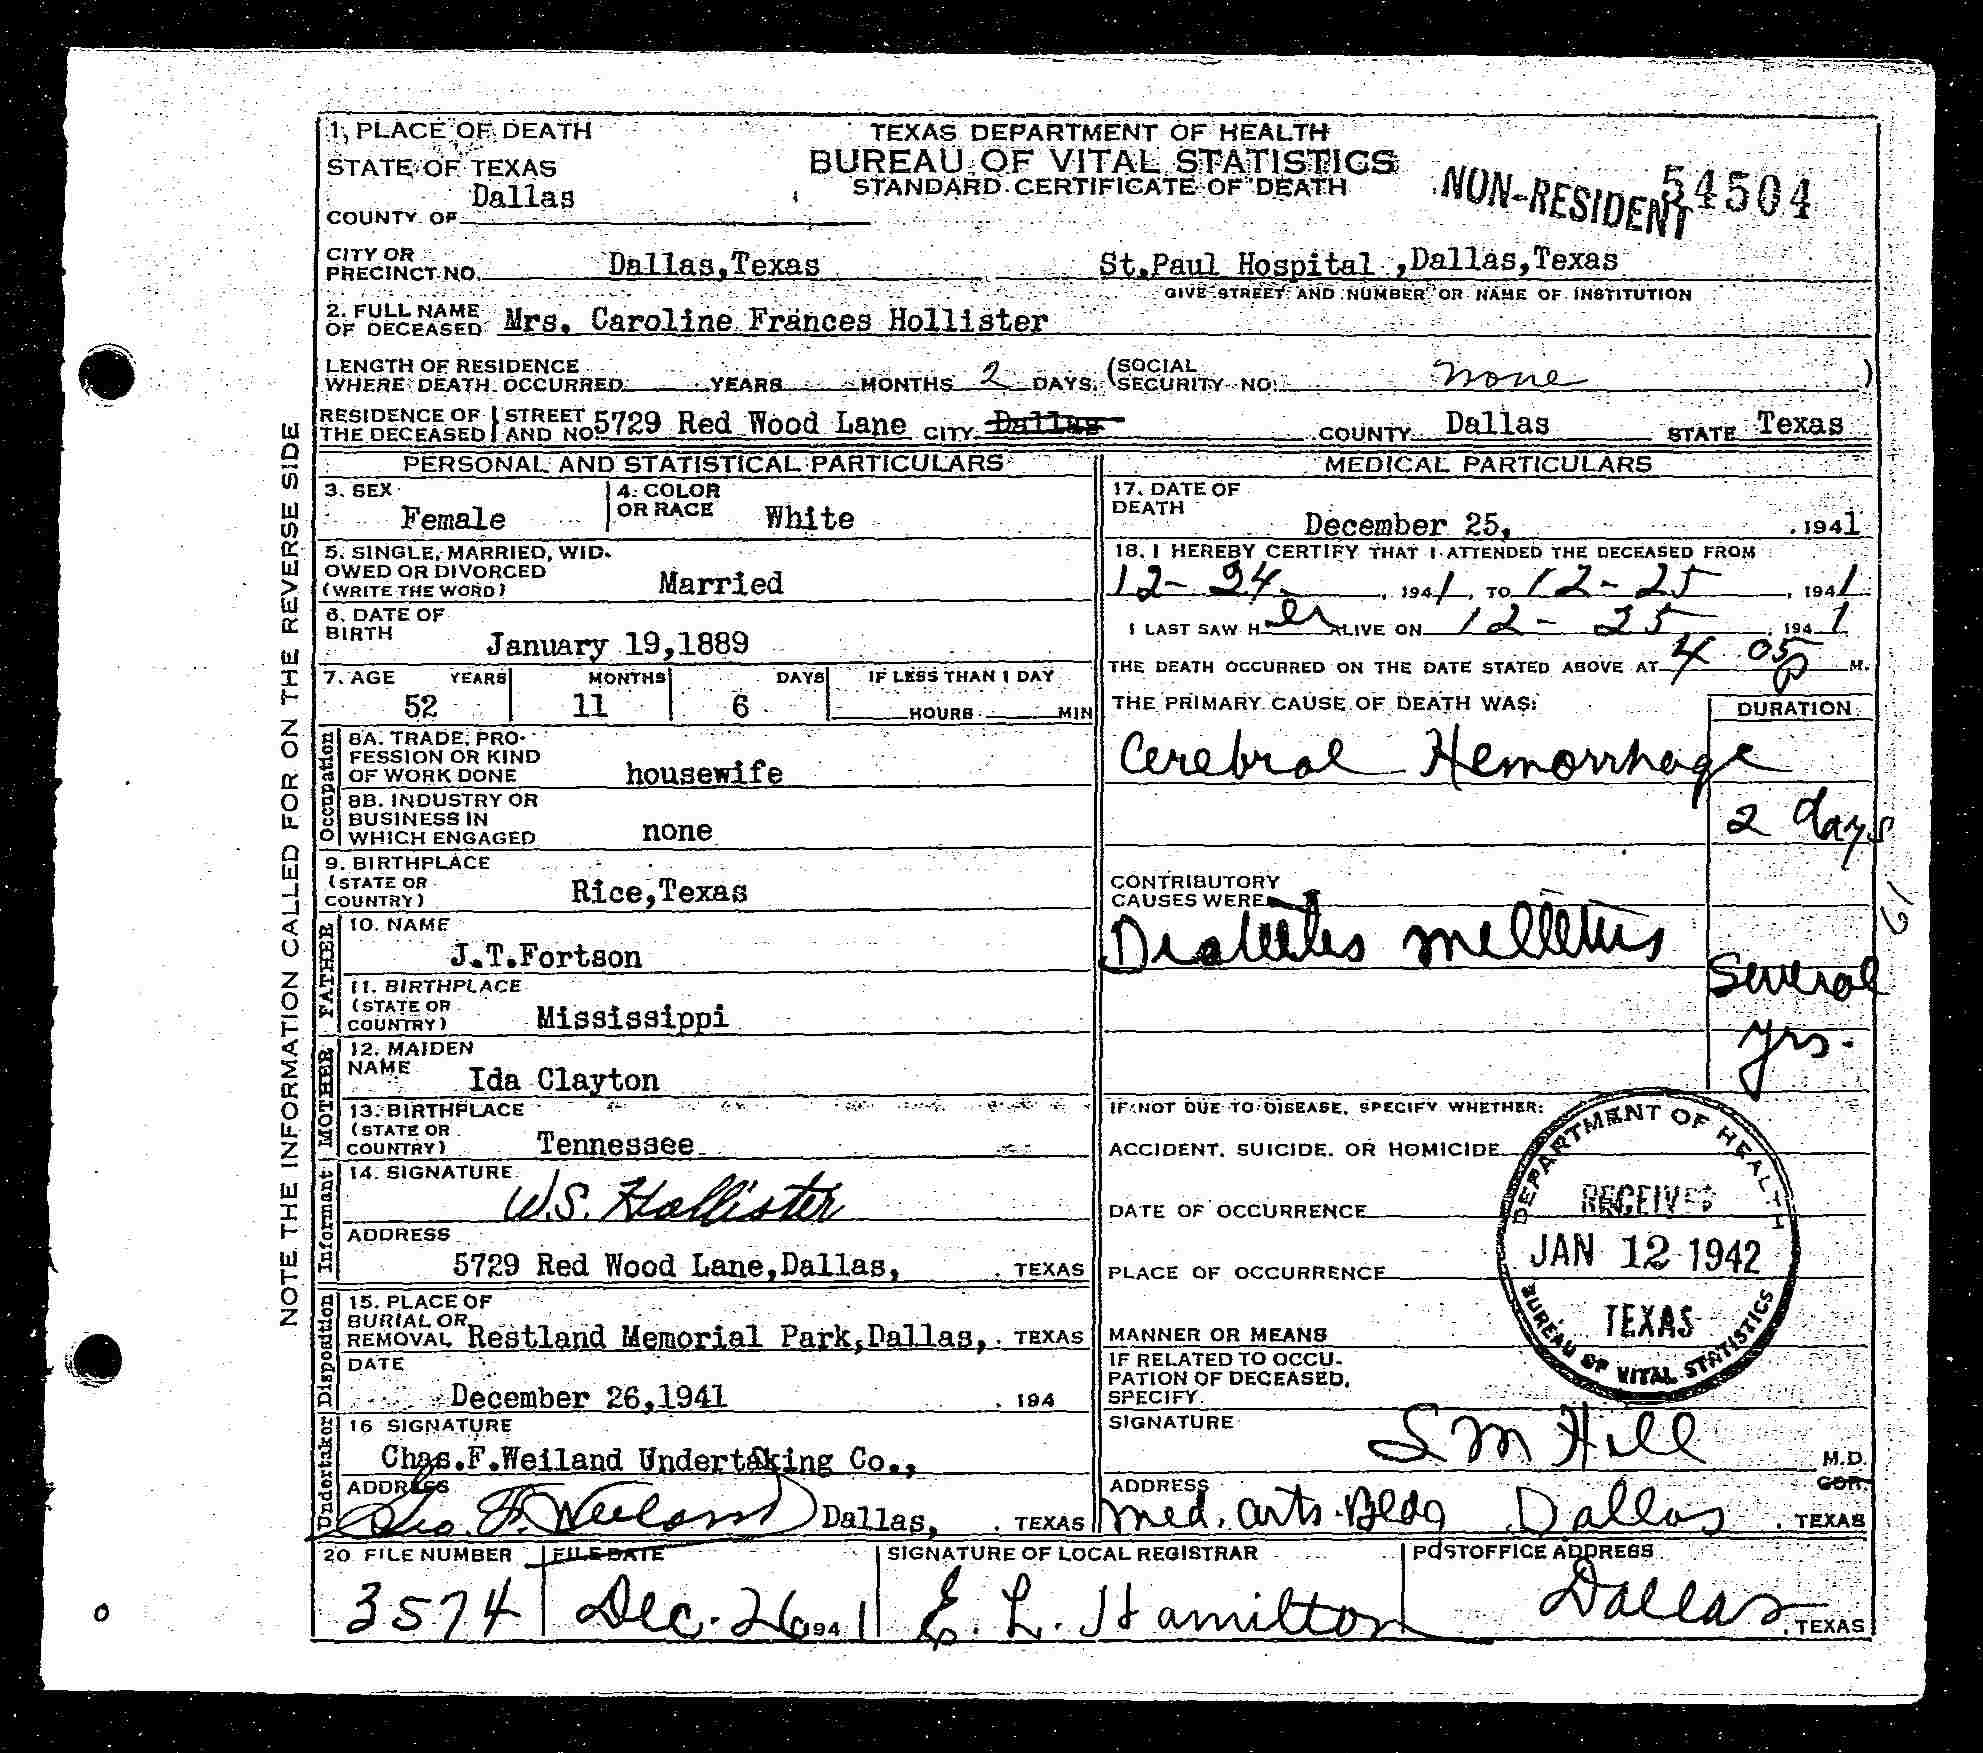 NOTE THE INFORMATION CALLED FOR ON THE REVERSE SIDE
1. PLACE OF DEATH
STATE OF TEXAS
COUNTY OF Dallas
TEXAS DEPARTMENT OF HEALTH
BUREAU OF VITAL STATISTICS
STANDARD CERTIFICATE OF DEATH
NON-RESIDENT 54504
CITY OR PRECINCT NO. Dallas,Texas St.Paul Hospital ,Dallas,Texas
GIVE STREET AND NUMBER OR NAME OF INSTITUTION
2. FULL NAME OF DECEASED Mrs. Caroline Frances Hollister
LENGTH OF RESIDENCE WHERE DEATH OCCURRED YEARS MONTHS 2 DAYS. (SOCIAL SECURITY NO. none )
RESIDENCE OF THE DECEASED STREET AND NO. 5729 Red Wood Lane CITY Dallas COUNTY Dallas STATE Texas
PERSONAL AND STATISTICAL PARTICULARS
3. SEX Female
4. COLOR OR RACE White
5. SINGLE, MARRIED, WIDOWED OR DIVORCED (WRITE THE WORD) Married
6. DATE OF BIRTH January 19,1889
7. AGE YEARS MONTHS DAYS IF LESS THAN 1 DAY
52 11 6 HOURS MIN
Occupation
8A. TRADE, PROFESSION OR KIND OF WORK DONE housewife
8B. INDUSTRY OR BUSINESS IN WHICH ENGAGED none
9. BIRTHPLACE (STATE OR COUNTRY) Rice,Texas
FATHER
10. NAME J.T.Fortson
11. BIRTHPLACE (STATE OR COUNTRY) Mississippi
MOTHER
12. MAIDEN NAME Ida Clayton
13. BIRTHPLACE (STATE OR COUNTRY) Tennessee
Informant
14. SIGNATURE W.S. Hollister
ADDRESS 5729 Red Wood Lane,Dallas, TEXAS
Disposition
15. PLACE OF BURIAL OR REMOVAL Restland Memorial Park,Dallas, TEXAS
DATE December 26,1941 , 194
Undertaker
16 SIGNATURE Chas.F.Weiland Undertaking Co.,
ADDRESS Geo. F. Weiland Dallas, TEXAS
MEDICAL PARTICULARS
17. DATE OF DEATH December 25, , 1941
18. I HEREBY CERTIFY THAT I ATTENDED THE DECEASED FROM
12-24 , 1941, TO 12-25 , 1941
I LAST SAW Her ALIVE ON 12-25 , 1941
THE DEATH OCCURRED ON THE DATE STATED ABOVE AT 4 05 P M.
THE PRIMARY CAUSE OF DEATH WAS: DURATION
Cerebral Hemorrhage
2 days
CONTRIBUTORY CAUSES WERE
Diabetes mellitus
Several yrs.
61
IF NOT DUE TO DISEASE, SPECIFY WHETHER:
ACCIDENT, SUICIDE, OR HOMICIDE
DATE OF OCCURRENCE
PLACE OF OCCURRENCE
MANNER OR MEANS
IF RELATED TO OCCUPATION OF DECEASED, SPECIFY
DEPARTMENT OF HEALTH
RECEIVED
JAN 12 1942
TEXAS
BUREAU OF VITAL STATISTICS
SIGNATURE S M Hill M.D.
COR.
ADDRESS Med. Arts. Bldg Dallas , TEXAS
20 FILE NUMBER FILE DATE SIGNATURE OF LOCAL REGISTRAR POSTOFFICE ADDRESS
3574 Dec. 26 1941 E. L. Hamilton Dallas , TEXAS